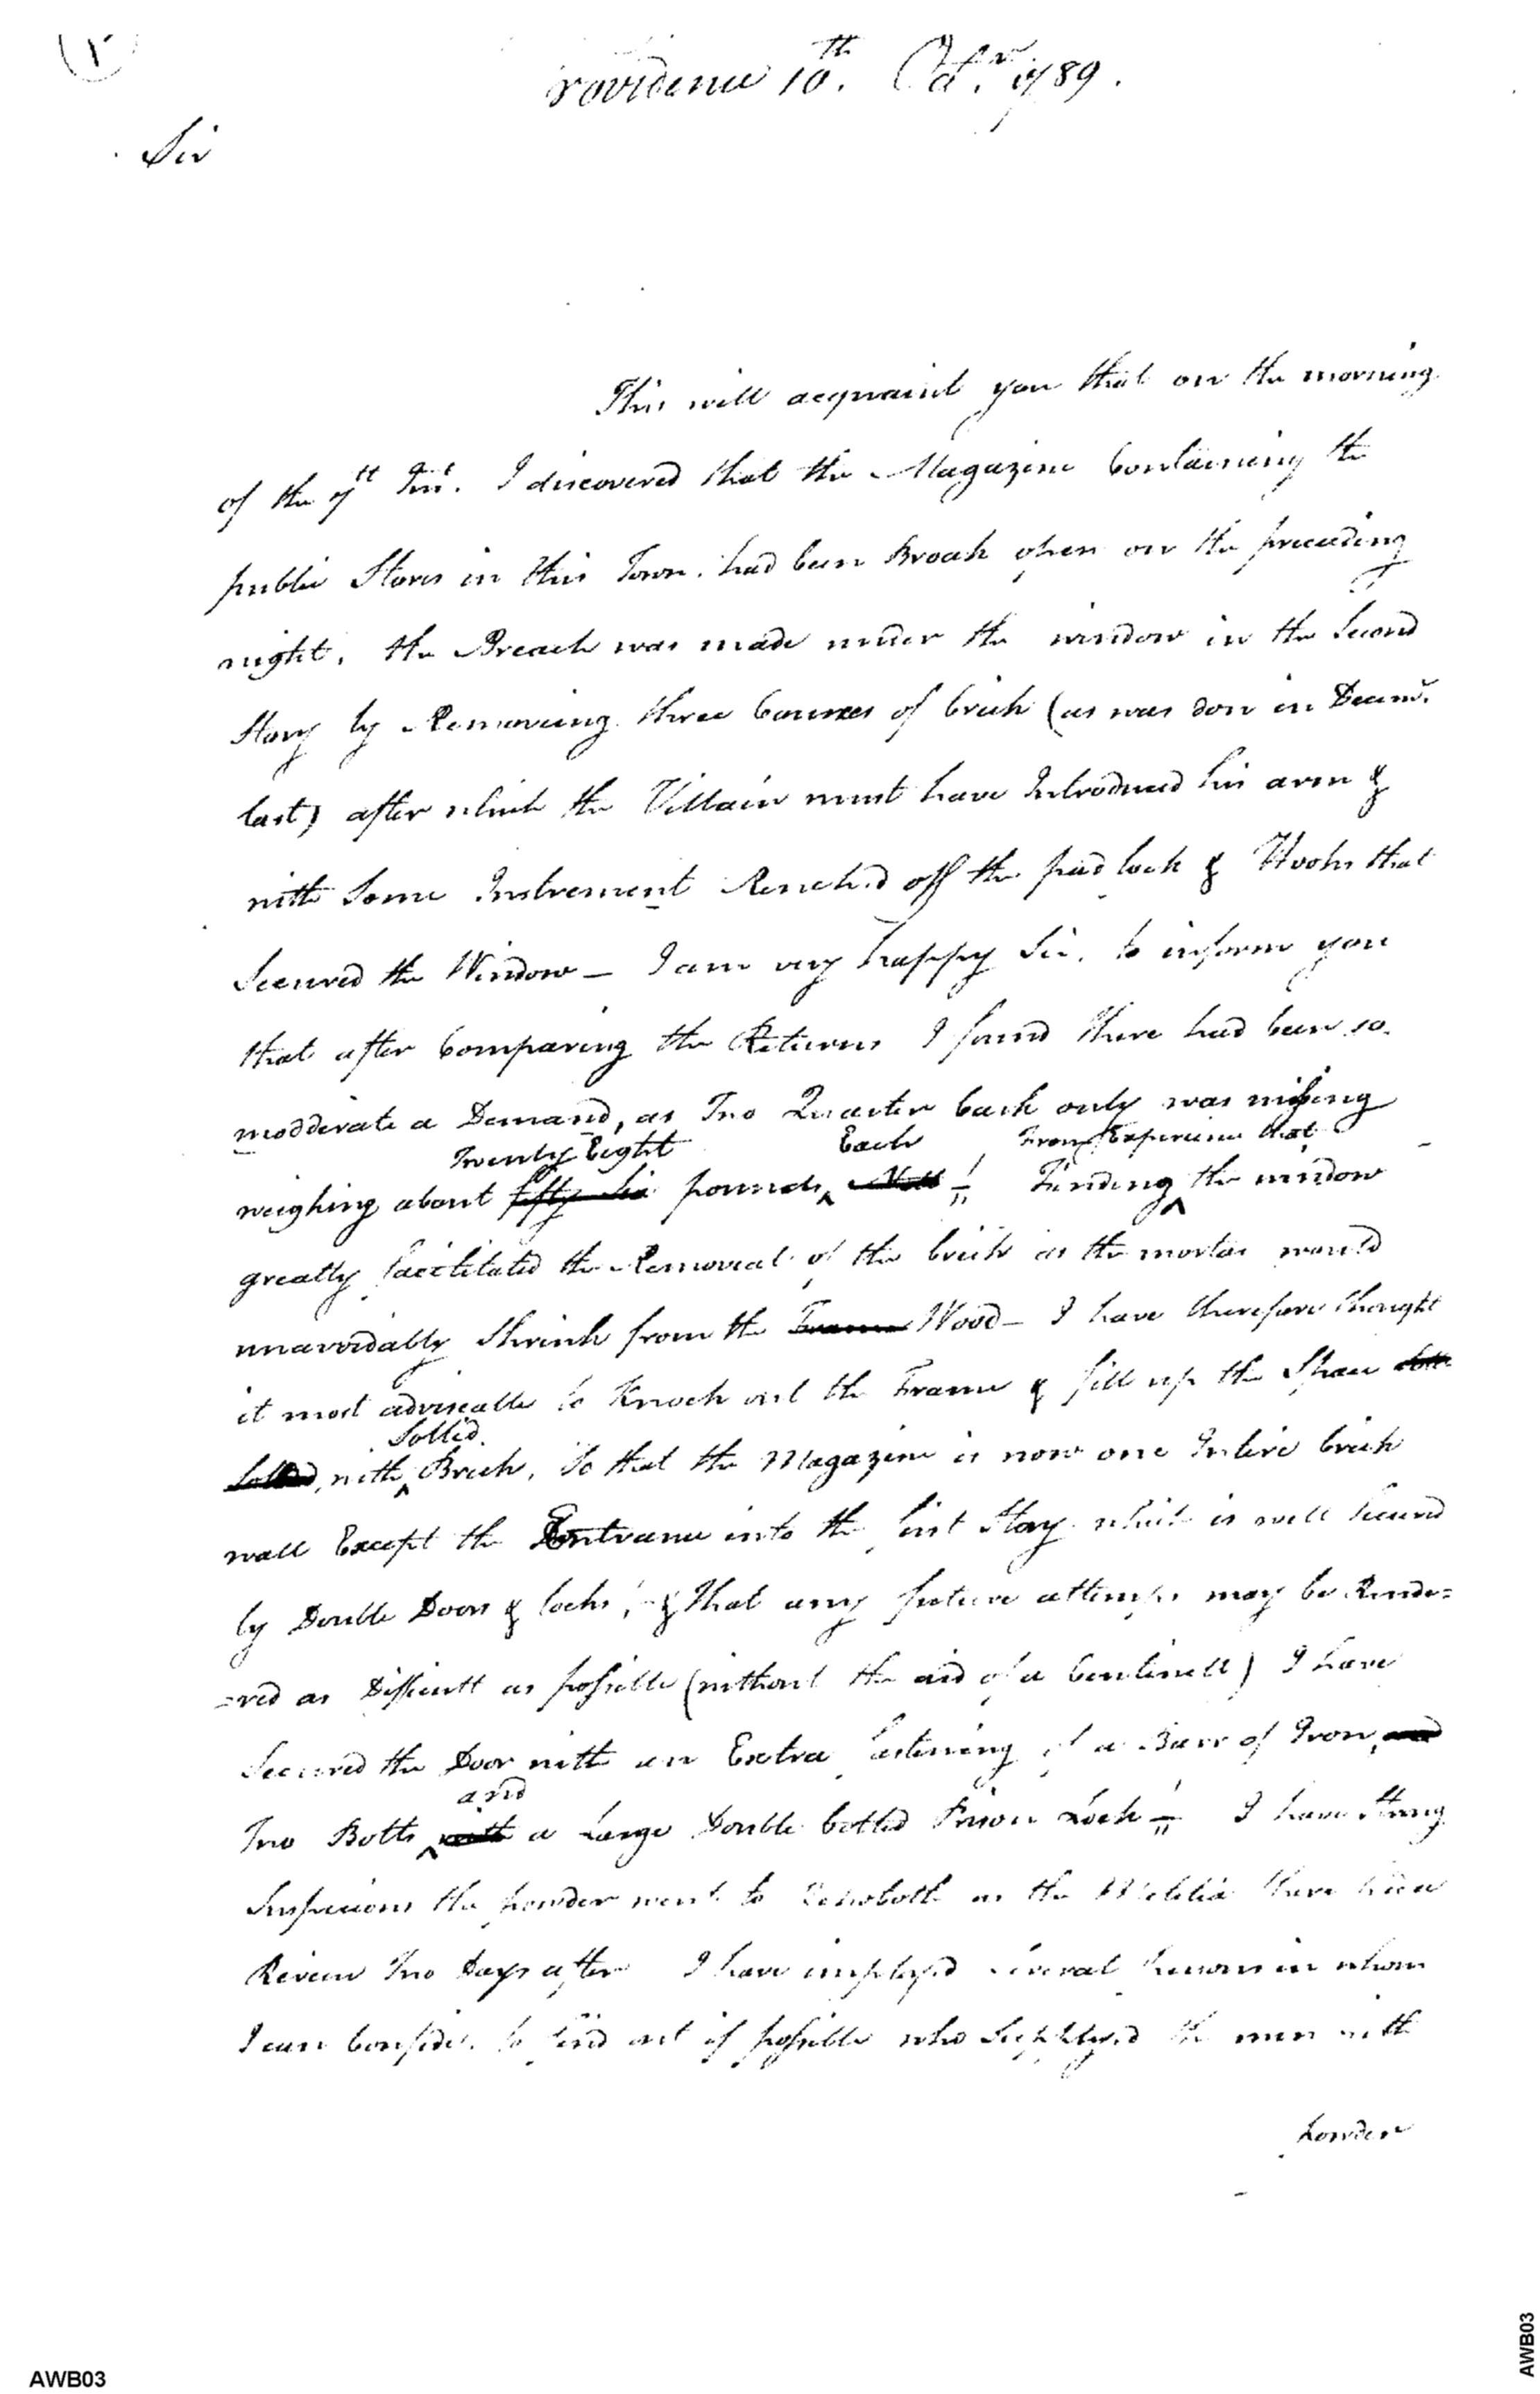 rovidence 10th. Octr. 1789.
Sir
This will acquaint you that on the morning
of the 7th Inst. I discovered that the Magazine Containing the
public Stores in this Town. had been Broak open on the preceeding
night, the Breach was made under the window in the Second
Story by Removeing three Courses of brick (as was don in Decemr.
last) after which the Villain must have Introduced his arm &
with Some Instrement Renchd off the pad lock & Hooks that
Secured the Window – I am very happy Sir, to inform you
that after Comparing the Returns I found there had been so
modderate a Demand, as Two Quarter Cask only was missing
Twenty Eight Each From Experience that
weighing about fifty six pounds, Finding the window
greatly facilitated the Removeal of the brick as the mortar would
unavoidably Shrink from the Frame Wood – I have therefore thought
it most adviseable to Knock out the Frame & fill up the Space
Sollid.
Sollid, with Brick, So that the Magazine is now one Intire brick
wall Except the Entrance into the first Story which is well Secured
by Double Doors & locks, & that any future attemps may be Rende=
=red as Difficult as possible (without the aid of a Centinell) I have
Secured the Door with an Extra fastening of a Barr of Iron, and
and
Two Bolts with a Large Double bolted Prison Lock – I have Strong
Suspicions the powder went to Rehoboth as the Militia there had a
Review Two Days after I have imployd several persons in whom
I can Confide. to find out if possible who Supplyed the men with
Powder
AWB03
AWB03